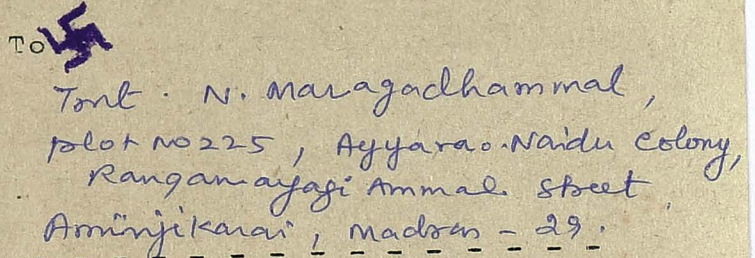 To
Tmt. N. Maragadhammal,
plot no 225, Ayyarao. Naidu Colony,
Ranganayagi Ammal. Street
Aminjikarai, Madras - 29.